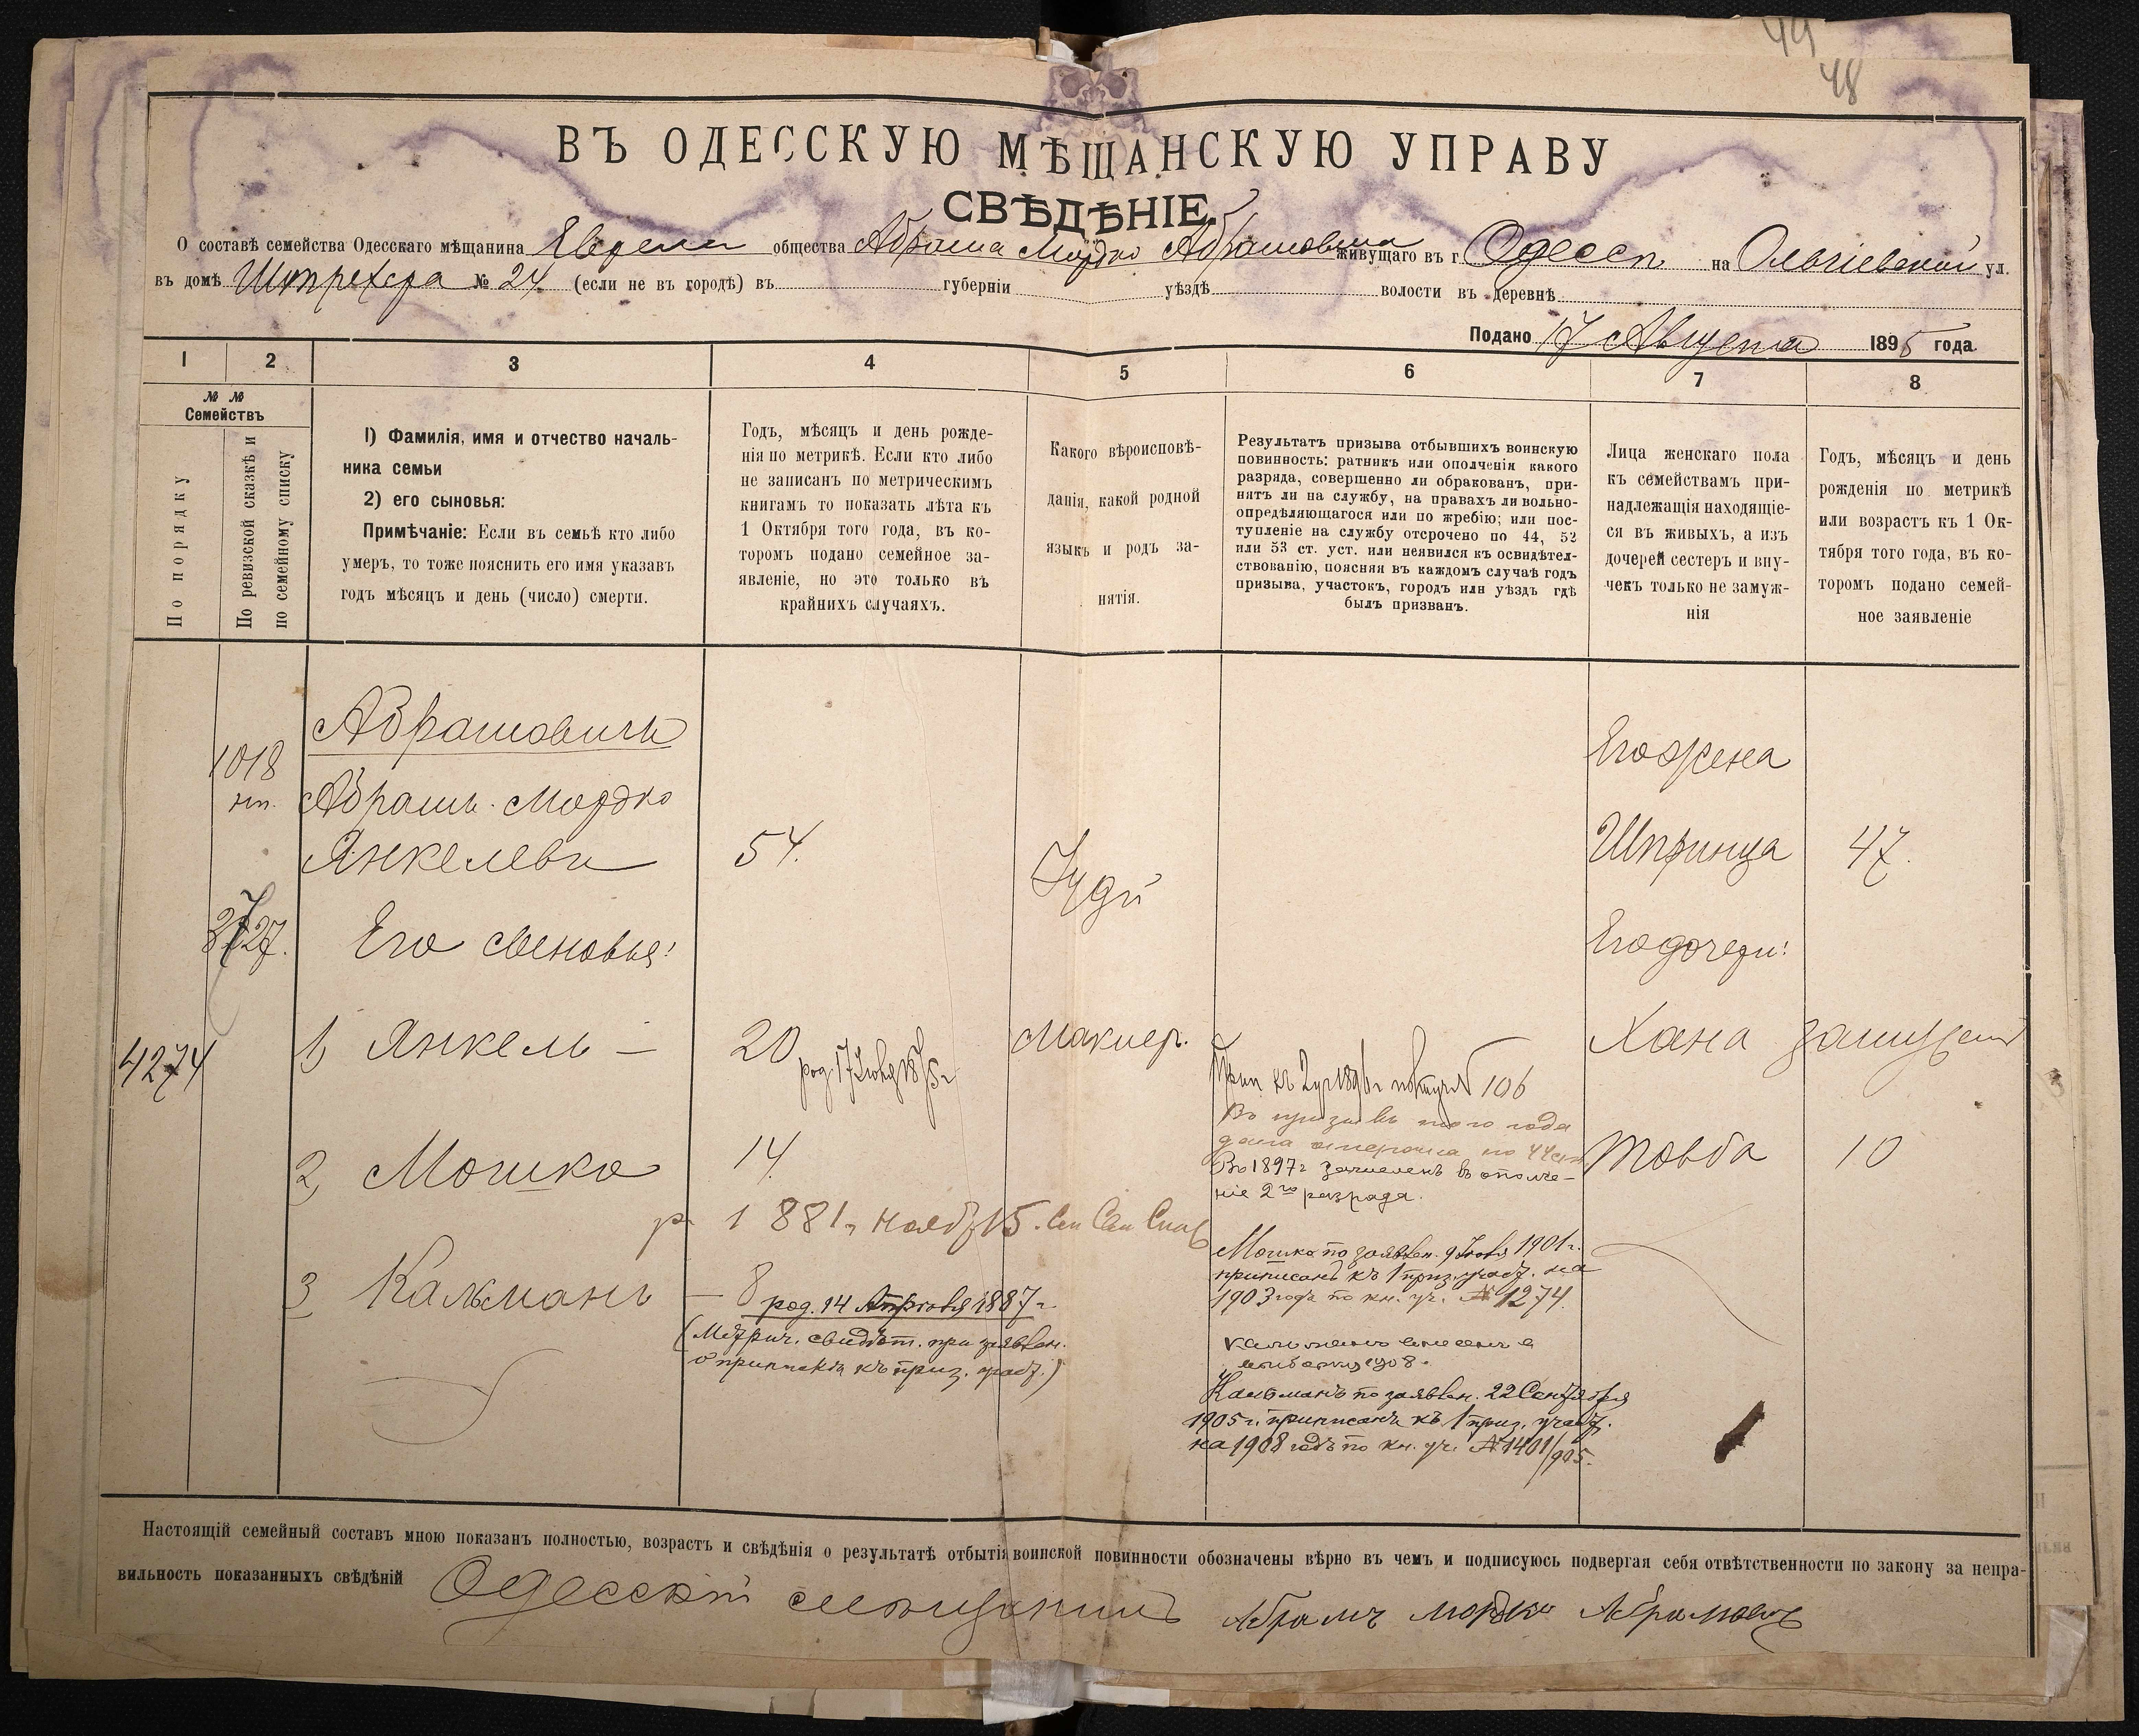 49
48
ВЪ ОДЕССКУЮ МѢЩАНСКУЮ УПРАВУ
СВѢДѢНІЕ.
О составѣ семейства Одесскаго мѣщанина Еврейск общества Абрама Мордко Абрамовича живущаго въ г. Одессѣ на Ольгіевской ул.
въ домѣ № 24 (если не въ городѣ) въ губерніи уѣздѣ волости въ деревнѣ
Подано 17 Августа 1895 года.
1 2 3 4 5 6 7 8
№ №
Семействъ
По порядку
По ревизской сказкѣ и
по семейному списку
1) Фамилія, имя и отчество началь-
ника семьи
2) его сыновья:
Примѣчаніе: Если въ семьѣ кто либо
умеръ, то тоже пояснить его имя указавъ
годъ мѣсяцъ и день (число) смерти.
Годъ, мѣсяцъ и день рожде-
нія по метрикѣ. Если кто либо
не записанъ по метрическимъ
книгамъ то показать лѣта къ
1 Октября того года, въ ко-
торомъ подано семейное за-
явленіе, но это только въ
крайнихъ случаяхъ.
Какого вѣроисповѣ-
данія, какой родной
языкъ и родъ за-
нятія.
Результатъ призыва отбывшихъ воинскую
повинность: ратникъ или ополченія какого
разряда, совершенно ли обракованъ, при-
нятъ ли на службу, на правахъ ли вольно-
опредѣляющагося или по жребію; или пос-
тупленіе на службу отсрочено по 44, 52
или 53 ст. уст. или неявился къ освидѣтел-
ствованію, поясняя въ каждомъ случаѣ годъ
призыва, участокъ, городъ или уѣздъ гдѣ
былъ призванъ.
Лица женскаго пола
къ семействамъ при-
надлежащія находящіе-
ся въ живыхъ, а изъ
дочерей сестеръ и вну-
чекъ только не замуж-
нія
Годъ, мѣсяцъ и день
рожденія по метрикѣ
или возрастъ къ 1 Ок-
тября того года, въ ко-
торомъ подано семей-
ное заявленіе
Абрамовичъ
1018
Абрамъ Мордко
Янкелевъ 54.
Іуд
Его жена
Шпринца 47.
3727.
Его сыновья:
Его дочери:
4274
1) Янкель — 20 Маклер.
род. 17 1875 г
106
Въ призывъ того года
дана отсрочка по 44 ст
Во 1897 г зачисленъ въ ополче-
ніе 2го разряда.
Хана замужем
2) Мошко 14.
р. 1881 г. Нояб 15.
Товба 10
Мошко по заявлен. 9 1901 г.
приписанъ къ 1 приз. участ. на
1903 годъ по кн. уч. № 1274.
3) Кальманъ — 8 род. 14 Апрѣля 1887 г.
(Метрич. свидѣт. при заявлен.
о припискѣ къ приз. участ.)
1908.
Кальманъ по заявлен. 22 Сентября
1905 г. приписанъ къ 1 приз. участ.
на 1908 годъ по кн. уч. № 1401/905.
Настоящій семейный составъ мною показанъ полностью, возрастъ и свѣдѣнія о результатѣ отбытія воинской повинности обозначены вѣрно въ чемъ и подписуюсь подвергая себя отвѣтственности по закону за непра-
вильность показанныхъ свѣдѣній Одесскій мѣщанинъ Абрамъ Мордко Абрамовичъ